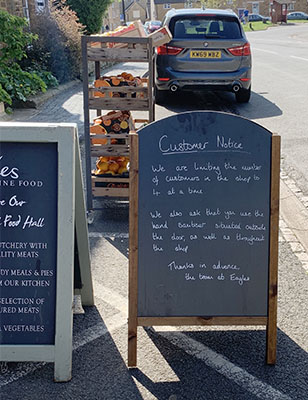 les
INE FOOD
ve Our
Food Hall
UTCHERY WITH
ALITY MEATS
DY MEALS & PIES
M OUR KITCHEN
SELECTION OF
URED MEATS
VEGETABLES
Customer Notice
We are limiting the number
of customers in the shop to
4 at a time
We also ask that you use the
hand sanitiser situated outside
the door, as well as throughout
the shop
Thanks in advance,
the team at Eagles
KW69 ZBC